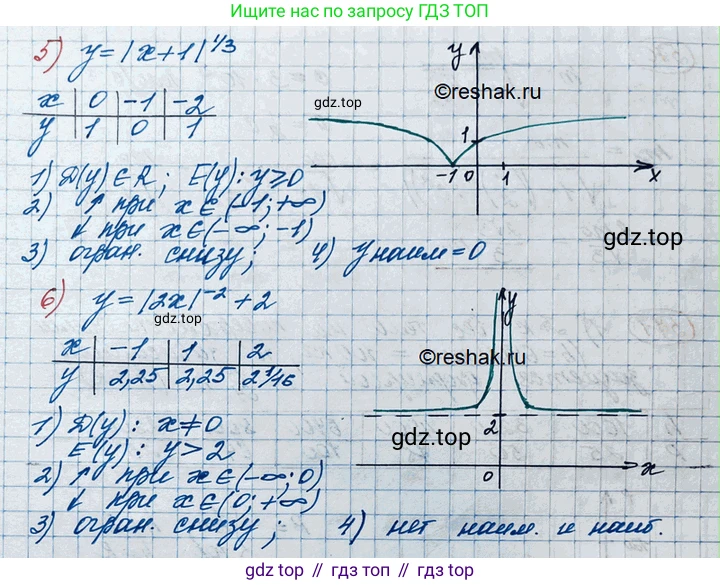 Ищите нас по запросу ГДЗ ТОП
5) y = |x+1|^1/3
x 0 -1 -2
y 1 0 1
gdz.top
©reshak.ru
y
1
-1 0 1 x
1) D(y) ∈ R; E(y): y ≥ 0
2) ↑ при x ∈ (-1; +∞)
↓ при x ∈ (-∞; -1)
3) огран. снизу; 4) y наим = 0
gdz.top
6) y = |2x|^-2 + 2
gdz.top
x -1 1 2
y 2,25 2,25 2 1/16
y
©reshak.ru
2
gdz.top
0 x
1) D(y): x ≠ 0
E(y): y > 2
2) ↑ при x ∈ (-∞; 0)
↓ при x ∈ (0; +∞)
3) огран. снизу; 4) нет наим. и наиб.
gdz.top // гдз.top // гдз.топ